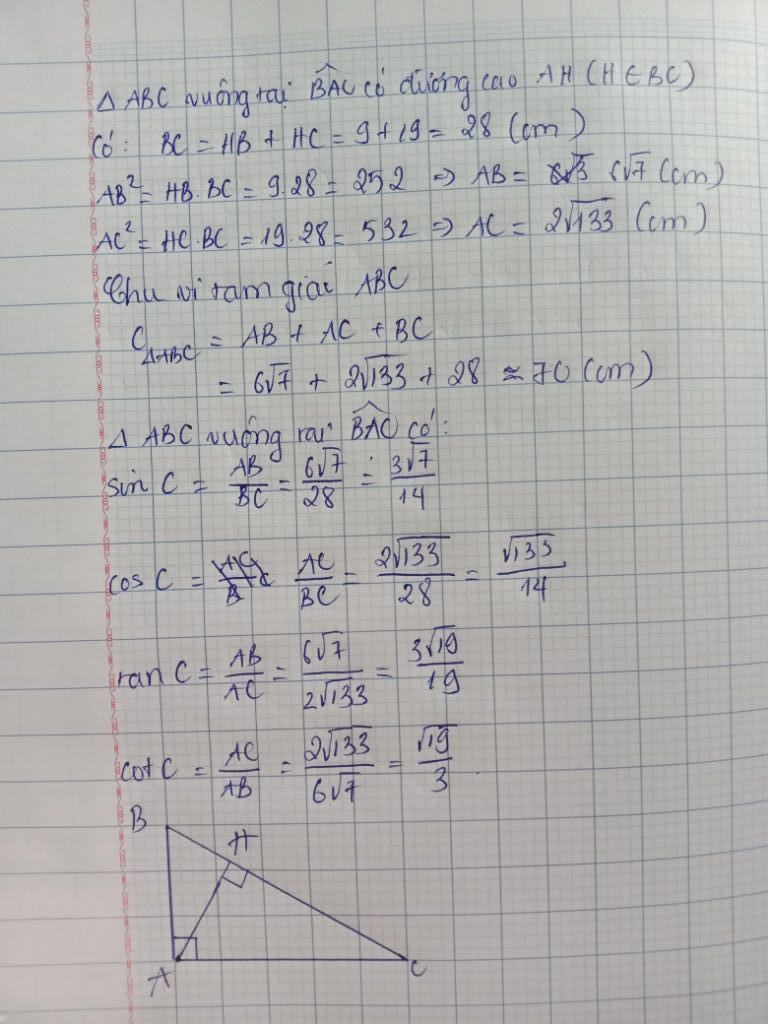 Δ ABC vuông tại \widehat{BAC} có đường cao AH (H ∈ BC)
Có: BC = HB + HC = 9 + 19 = 28 (cm)
AB² = HB.BC = 9.28 = 252 => AB = 6√7 (cm)
AC² = HC.BC = 19.28 = 532 => AC = 2√133 (cm)
Chu vi tam giác ABC
C_{ΔABC} = AB + AC + BC
= 6√7 + 2√133 + 28 ≈ 70 (cm)
Δ ABC vuông tại \widehat{BAC} có:
sin C = AB/BC = 6√7/28 = 3√7/14
cos C = AC/BC = 2√133/28 = √133/14
tan C = AB/AC = 6√7/2√133 = 3√19/19
cot C = AC/AB = 2√133/6√7 = √19/3
B
H
A
C